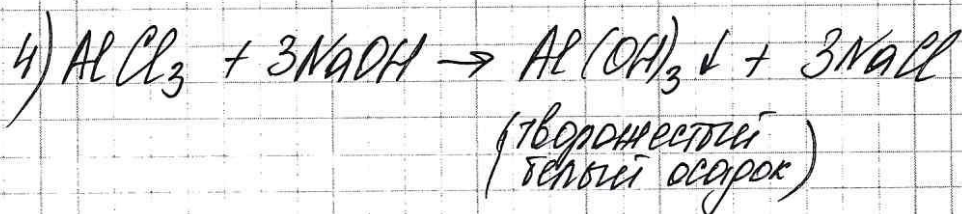 4) AlCl₃ + 3NaOH → Al(OH)₃↓ + 3NaCl
(творожестый
белый осадок)